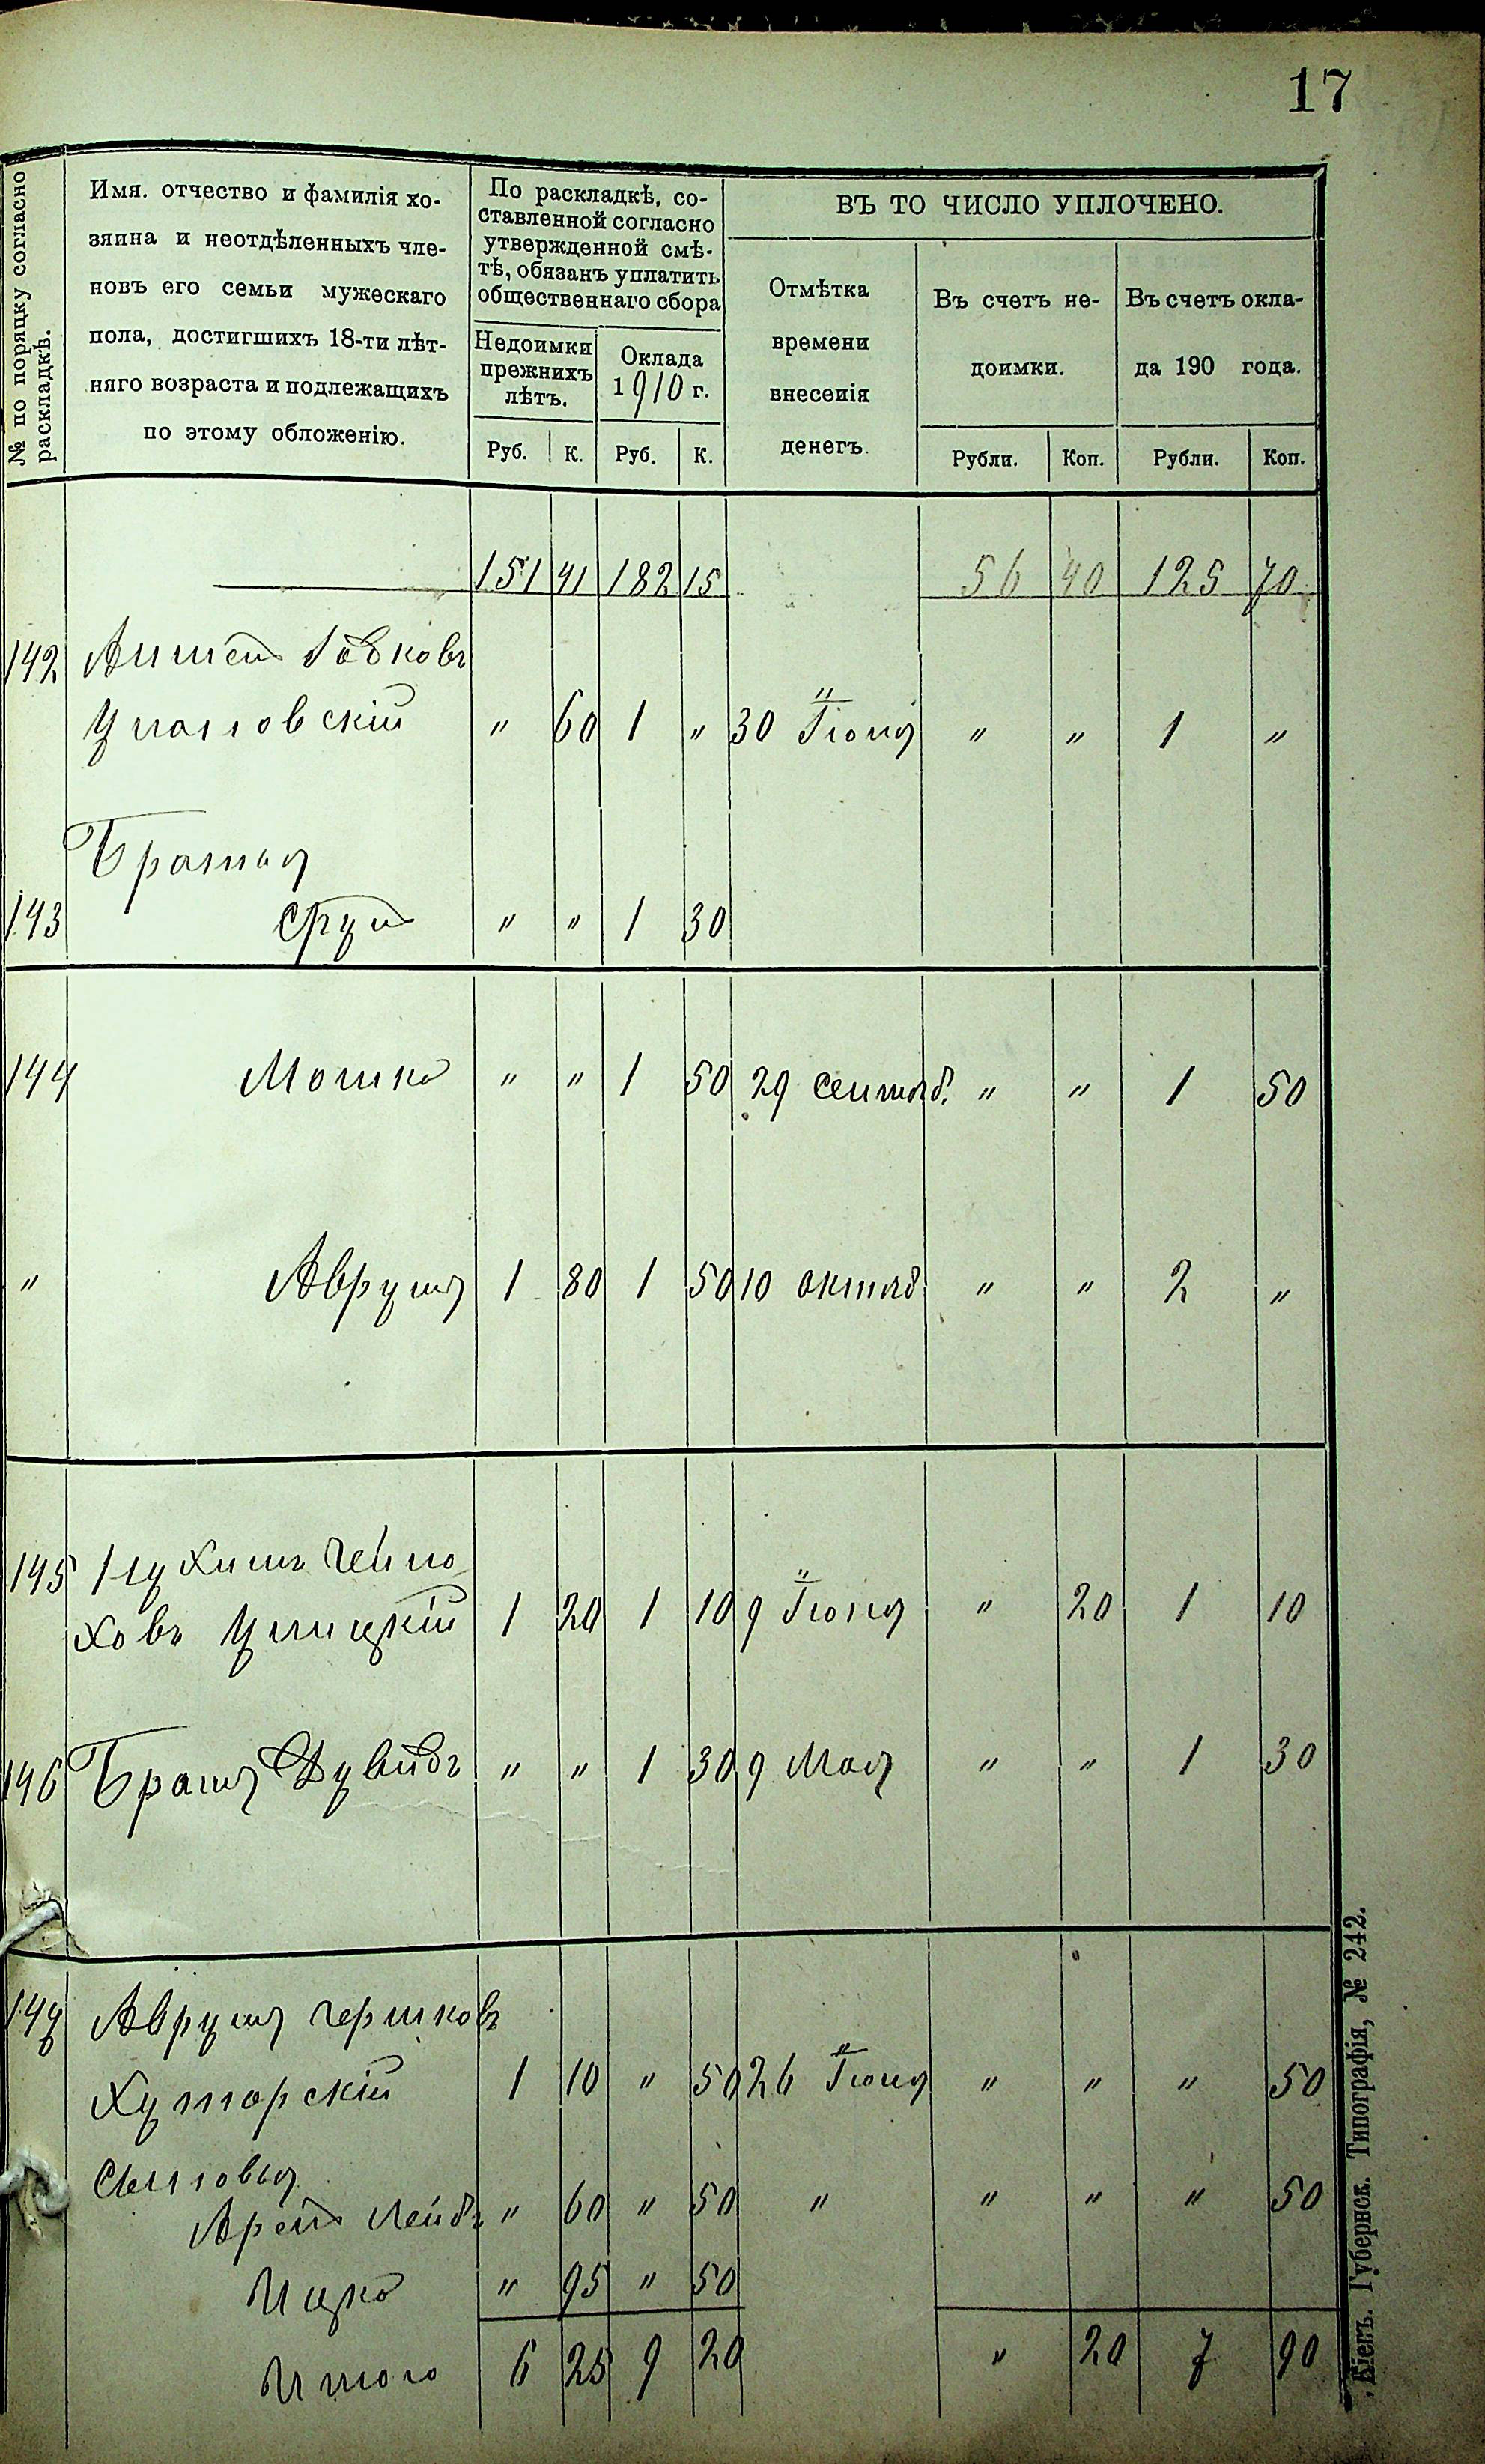 17
№ по поряцку согласно
раскладкѣ.
Имя. отчество и фамилія хо-
зяина и неотдѣленныхъ чле-
новъ его семьи мужескаго
пола, достигшихъ 18-ти лѣт-
няго возраста и подлежащихъ
по этому обложенію.
По раскладкѣ, со-
ставленной согласно
утвержденной смѣ-
тѣ, обязанъ уплатить
общественнаго сбора
Недоимки
прежнихъ
лѣтъ.
Оклада
1910 г.
ВЪ ТО ЧИСЛО УПЛОЧЕНО.
Отмѣтка
времени
внесенія
денегъ.
Въ счетъ не-
доимки.
Въ счетъ окла-
да 190 года.
Руб. К. Руб. К. Рубли. Коп. Рубли. Коп.
151 41 182 15 56 40 125 70
142
" 60 1 " 30 Іюня " " 1 "
Братья
143 Сруль " " 1 30
144 Мошко " " 1 50 29 Сентяб. " " 1 50
" Аврумъ 1 80 1 50 10 октяб " " 2 "
145 Нухимъ Гейно
ховъ Улицкій 1 20 1 10 9 Іюня " 20 1 10
146 Братъ Дувидъ " " 1 30 9 Мая " " 1 30
147 Аврумъ Гершковъ
Хуторскій 1 10 " 50 26 Іюня " " " 50
Сыновья
Аронъ Лейбъ " 60 " 50 " " " " 50
Ицко " 95 " 50
Итого 6 25 9 20 " 20 7 90
Кіевъ. Губернск. Типографія, № 242.